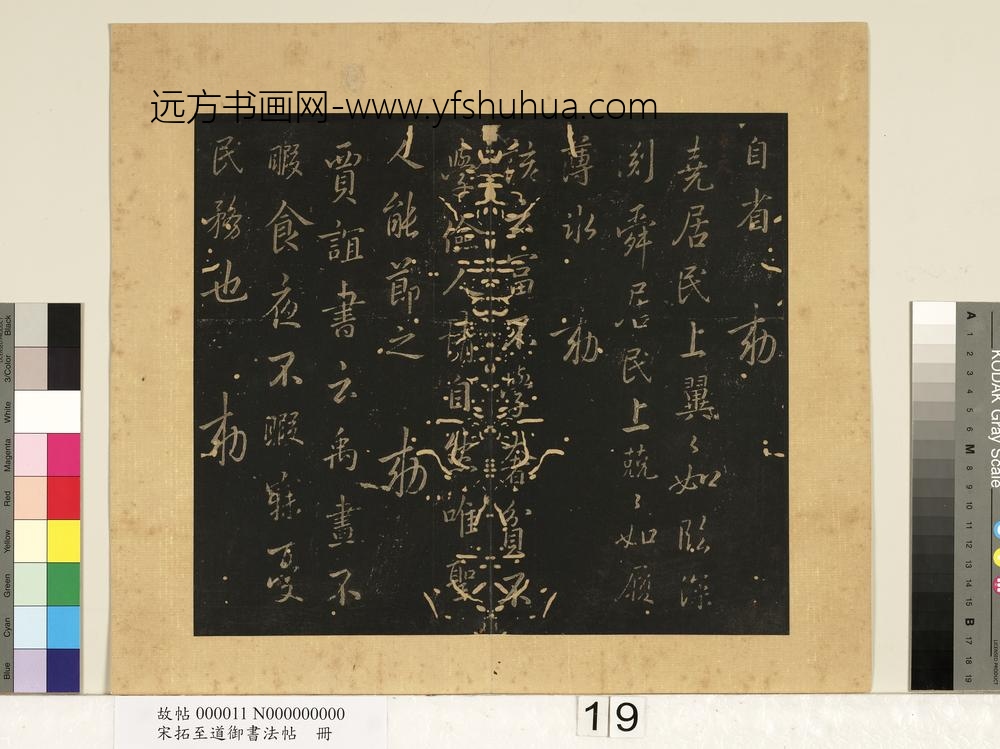 远方书画网-www.yfshuhua.com
自省 勅
堯居民上翼〻如臨深
舜居民上兢〻如履
薄氷 勅
諺云富不學奢貧不
學儉人 自然唯聖
人能節之 勅
賈誼書云禹晝不
暇食夜不暇寐
民務也 勅
故帖 000011 N000000000
宋拓至道御書法帖 冊
19
KODAK Gray Scale
A 1 2 3 4 5 6 M 8 9 10 11 12 13 14 15 B 17 18 19
Black
3/Color
White
Magenta
Red
Yellow
Green
Cyan
Blue